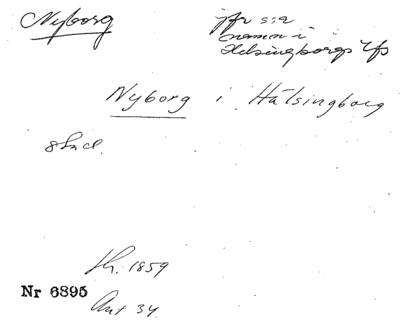 Nyborg
jfr s:a
namn i
Helsingborgs lfs
Nyborg i Hälsingborg
Th. 1859
Nr 6895
Ant 34